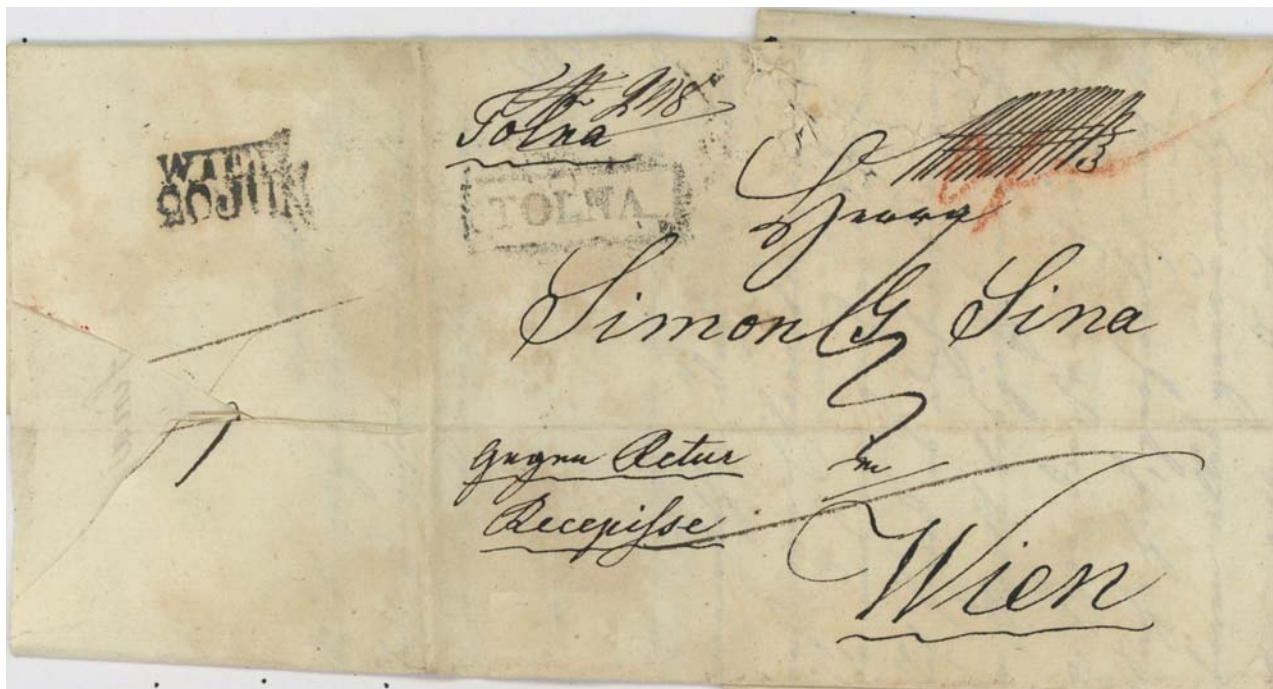 WIEN
20 JUN
Tolna
TOLNA
Herrn
Simon G Sina
Gegen Retur
Recepisse
in
Wien